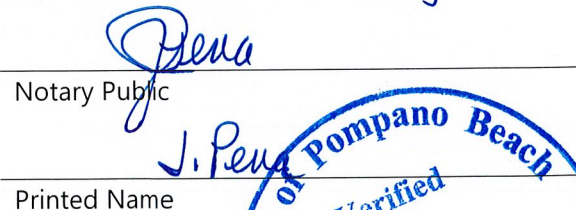 JPena
Notary Public
J. Pena
Printed Name
of Pompano Beach
Verified